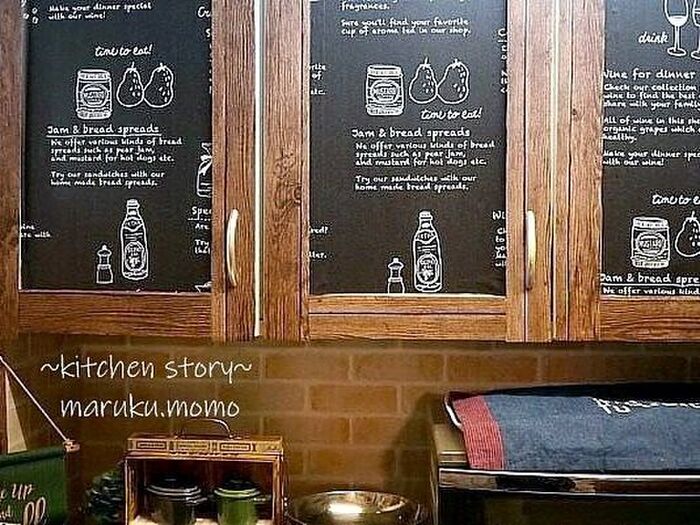 Make your dinner special
with our wine!
time to eat!
MUSTARD
Jam & bread spreads
We offer various kinds of bread
spreads such as pear jam,
and mustard for hot dogs etc.
Try our sandwiches with our
home made bread spreads.
Spec
Are
Try
wine
with
fragrances.
Sure you'll find your favorite
cup of aroma tea in our shop.
MUSTARD
time to eat!
Jam & bread spreads
We offer various kinds of bread
spreads such as pear jam,
and mustard for hot dogs etc.
Try our sandwiches with our
home made bread spreads.
drink
Wine for dinner
Check our collection
wine to find the best
share with your family
All of wine in this sho
organic grapes which
healthy.
Make your dinner spec
with our wine!
time to
MUSTARD
Jam & bread spre
We offer various kind
~kitchen story~
maruku.momo
UP